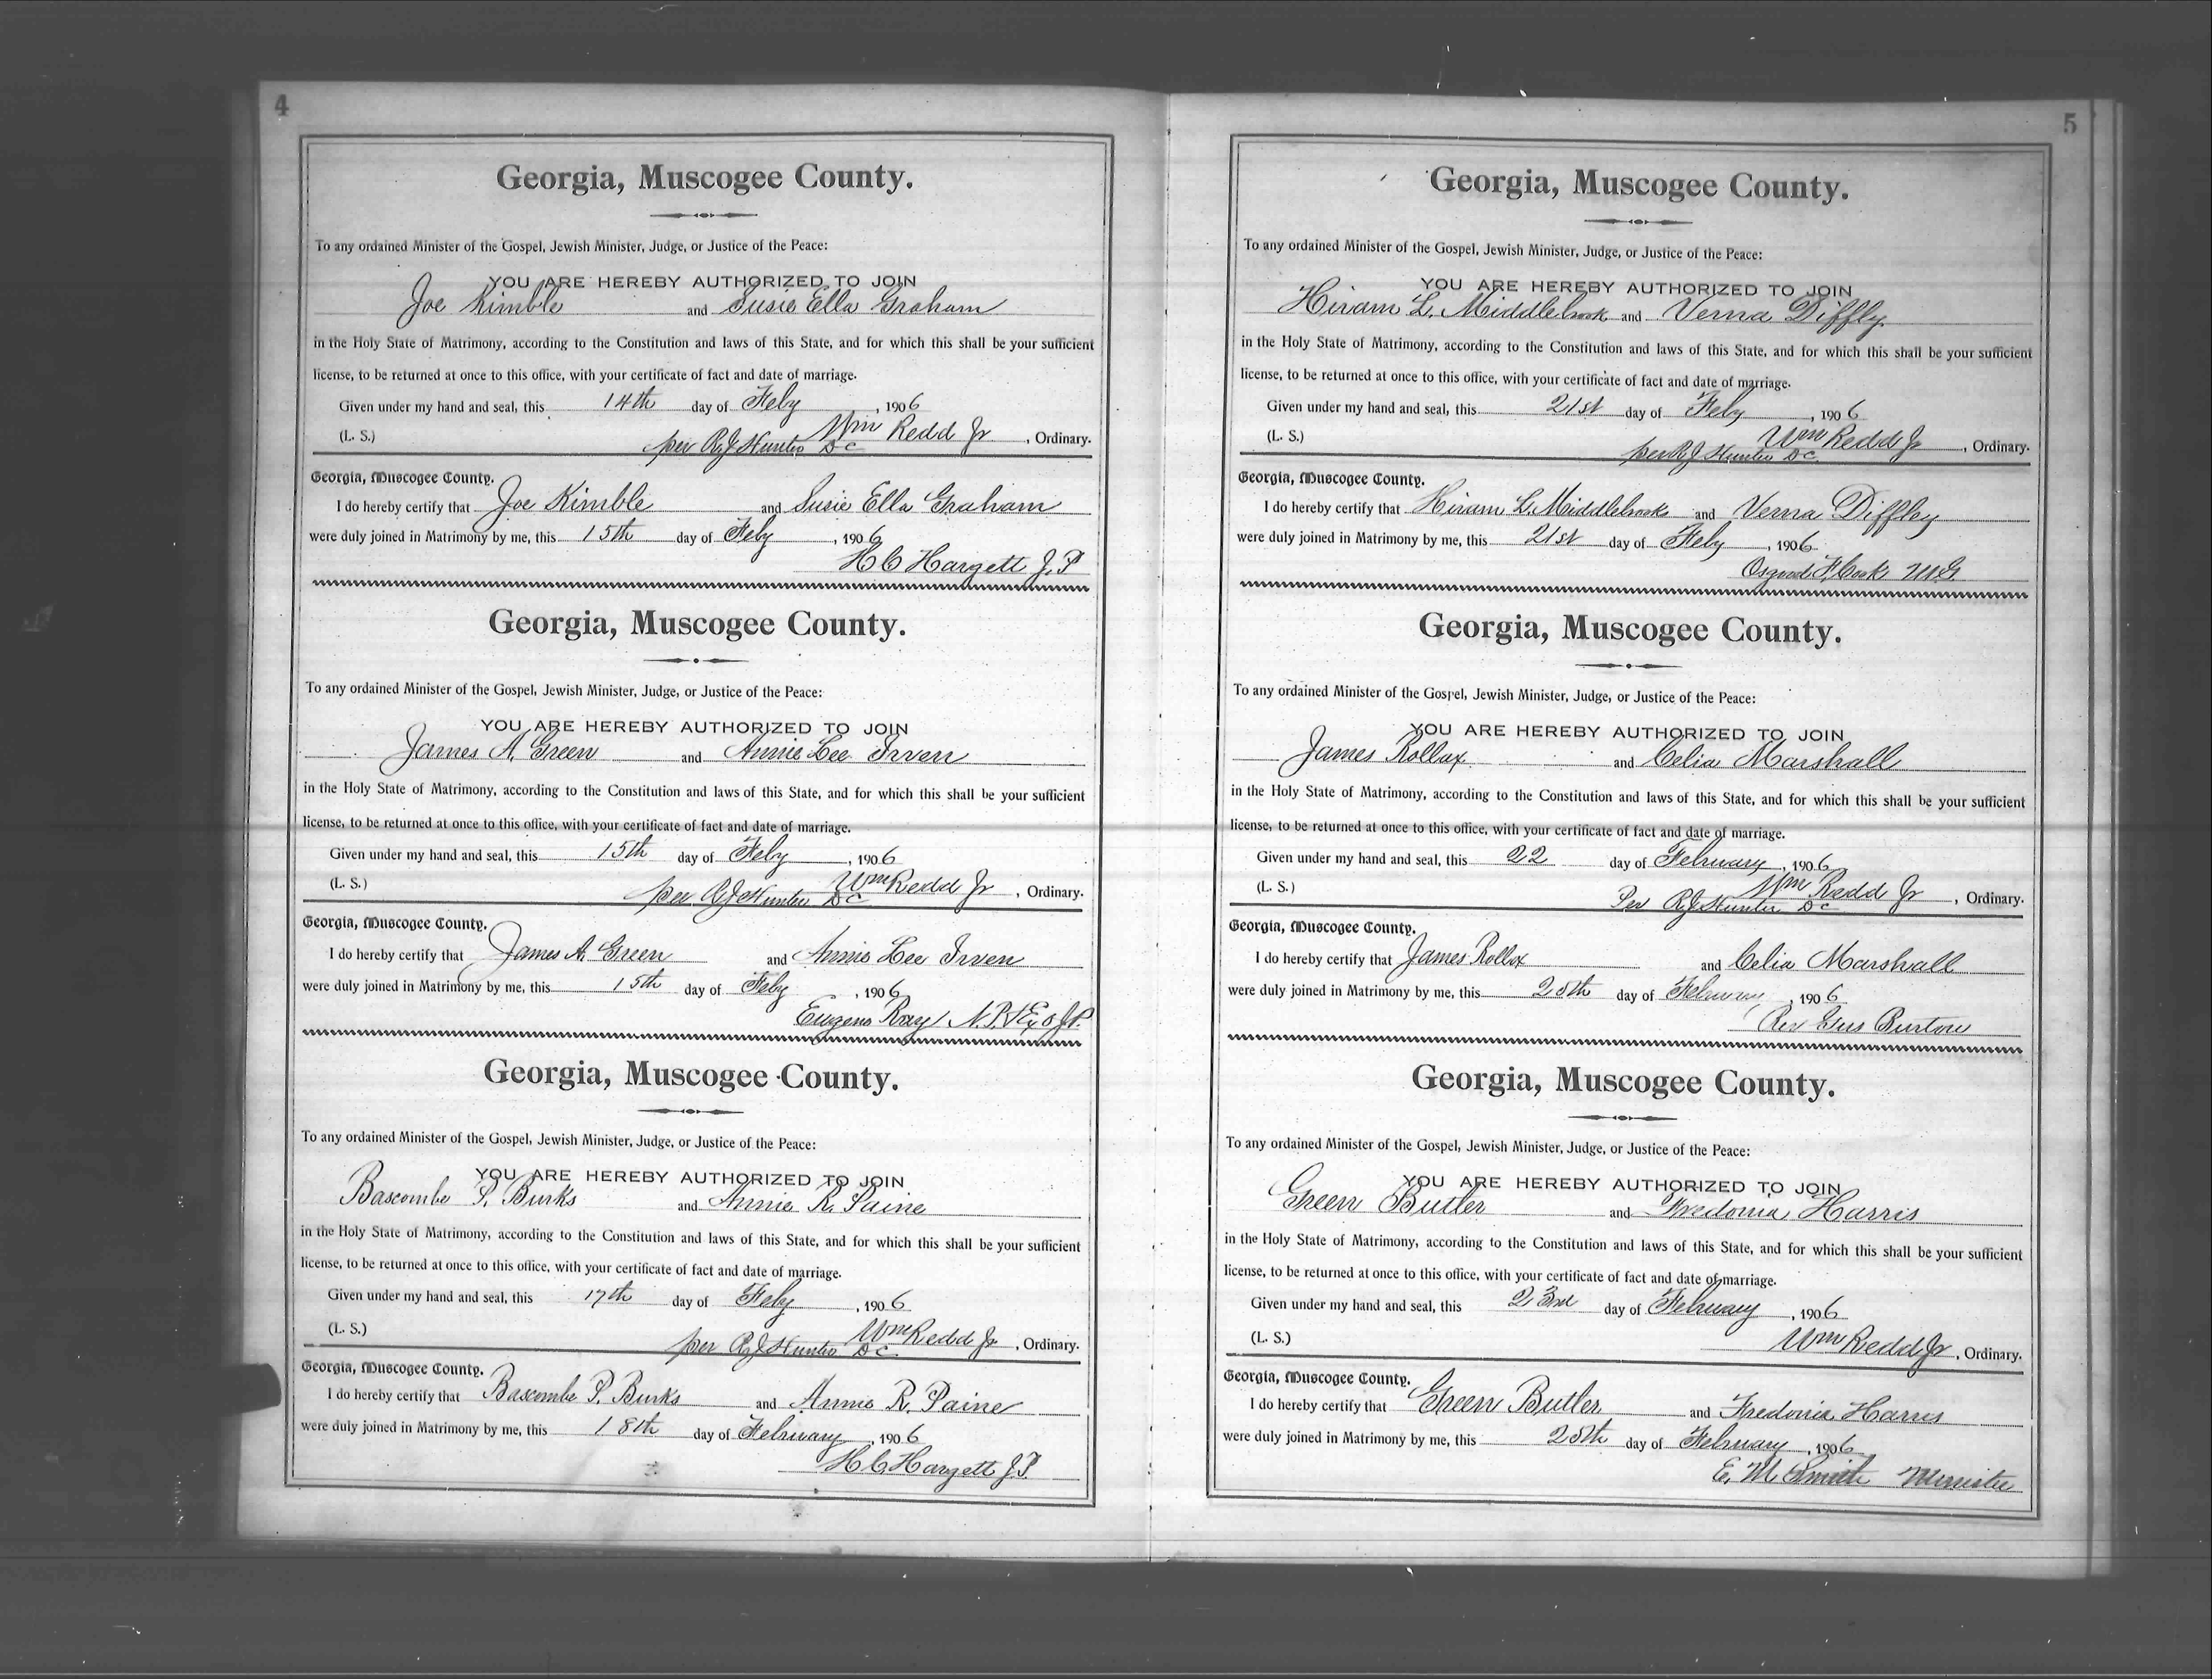 4
Georgia, Muscogee County.
To any ordained Minister of the Gospel, Jewish Minister, Judge, or Justice of the Peace:
YOU ARE HEREBY AUTHORIZED TO JOIN
Joe Kimble and Susie Ella Graham
in the Holy State of Matrimony, according to the Constitution and laws of this State, and for which this shall be your sufficient
license, to be returned at once to this office, with your certificate of fact and date of marriage.
Given under my hand and seal, this 14th day of Feby, 1906
(L. S.) per R J Hunter DC Wm Redd Jr, Ordinary.
Georgia, Muscogee County.
I do hereby certify that Joe Kimble and Susie Ella Graham
were duly joined in Matrimony by me, this 15th day of Feby, 1906
H C Hargett J. P
Georgia, Muscogee County.
To any ordained Minister of the Gospel, Jewish Minister, Judge, or Justice of the Peace:
YOU ARE HEREBY AUTHORIZED TO JOIN
James A. Green and Annie Lee Irven
in the Holy State of Matrimony, according to the Constitution and laws of this State, and for which this shall be your sufficient
license, to be returned at once to this office, with your certificate of fact and date of marriage.
Given under my hand and seal, this 15th day of Feby, 1906
(L. S.) per R J Hunter DC Wm Redd Jr, Ordinary.
Georgia, Muscogee County.
I do hereby certify that James A. Green and Annie Lee Irven
were duly joined in Matrimony by me, this 15th day of Feby, 1906
Eugene Ray N. P. & Ex o J. P.
Georgia, Muscogee County.
To any ordained Minister of the Gospel, Jewish Minister, Judge, or Justice of the Peace:
YOU ARE HEREBY AUTHORIZED TO JOIN
Bascombe P. Burks and Annie R. Paine
in the Holy State of Matrimony, according to the Constitution and laws of this State, and for which this shall be your sufficient
license, to be returned at once to this office, with your certificate of fact and date of marriage.
Given under my hand and seal, this 17th day of Feby, 1906
(L. S.) per R J Hunter DC Wm Redd Jr, Ordinary.
Georgia, Muscogee County.
I do hereby certify that Bascombe P. Burks and Annie R. Paine
were duly joined in Matrimony by me, this 18th day of February, 1906
H C Hargett J. P.
5
Georgia, Muscogee County.
To any ordained Minister of the Gospel, Jewish Minister, Judge, or Justice of the Peace:
YOU ARE HEREBY AUTHORIZED TO JOIN
Hiram L. Middlebrook and Verna Diffly
in the Holy State of Matrimony, according to the Constitution and laws of this State, and for which this shall be your sufficient
license, to be returned at once to this office, with your certificate of fact and date of marriage.
Given under my hand and seal, this 21st day of Feby, 1906
(L. S.) per R J Hunter DC Wm Redd Jr, Ordinary.
Georgia, Muscogee County.
I do hereby certify that Hiram L. Middlebrooks and Verna Diffley
were duly joined in Matrimony by me, this 21st day of Feby, 1906
Osgood F. Cook M G
Georgia, Muscogee County.
To any ordained Minister of the Gospel, Jewish Minister, Judge, or Justice of the Peace:
YOU ARE HEREBY AUTHORIZED TO JOIN
James Rollox and Celia Marshall
in the Holy State of Matrimony, according to the Constitution and laws of this State, and for which this shall be your sufficient
license, to be returned at once to this office, with your certificate of fact and date of marriage.
Given under my hand and seal, this 22 day of February, 1906
(L. S.) Per R J Hunter DC Wm Redd Jr, Ordinary.
Georgia, Muscogee County.
I do hereby certify that James Rollox and Celia Marshall
were duly joined in Matrimony by me, this day of February, 1906
Rev Gus Burton
Georgia, Muscogee County.
To any ordained Minister of the Gospel, Jewish Minister, Judge, or Justice of the Peace:
YOU ARE HEREBY AUTHORIZED TO JOIN
Green Butler and Fredonia Harris
in the Holy State of Matrimony, according to the Constitution and laws of this State, and for which this shall be your sufficient
license, to be returned at once to this office, with your certificate of fact and date of marriage.
Given under my hand and seal, this 23rd day of February, 1906
(L. S.) Wm Redd Jr, Ordinary.
Georgia, Muscogee County.
I do hereby certify that Green Butler and Fredonia Harris
were duly joined in Matrimony by me, this day of February, 1906
E. M. Smith Minister